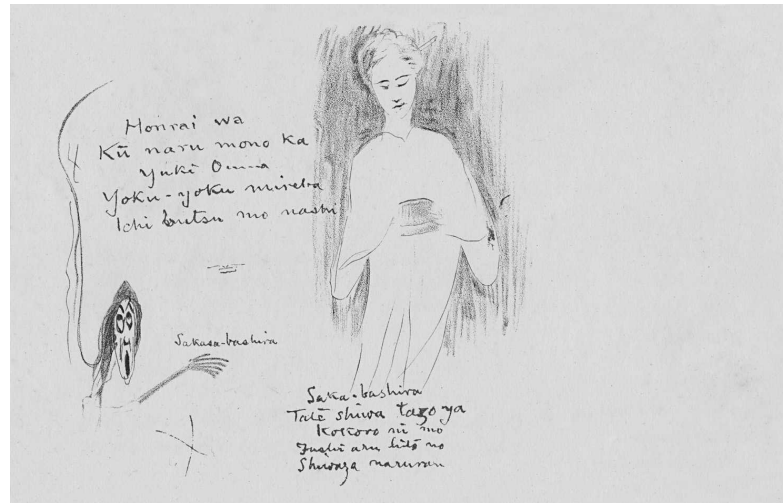 Honrai wa
Kū naru mono ka
Yuki Onna
Yoku-yoku mireba
Ichi butsu mo nashi
Sakasa-bashira
Saka-bashira
Tate shiwa tazo ya
Kokoro ni mo
Fushi aru hito no
Shiwaza naruran